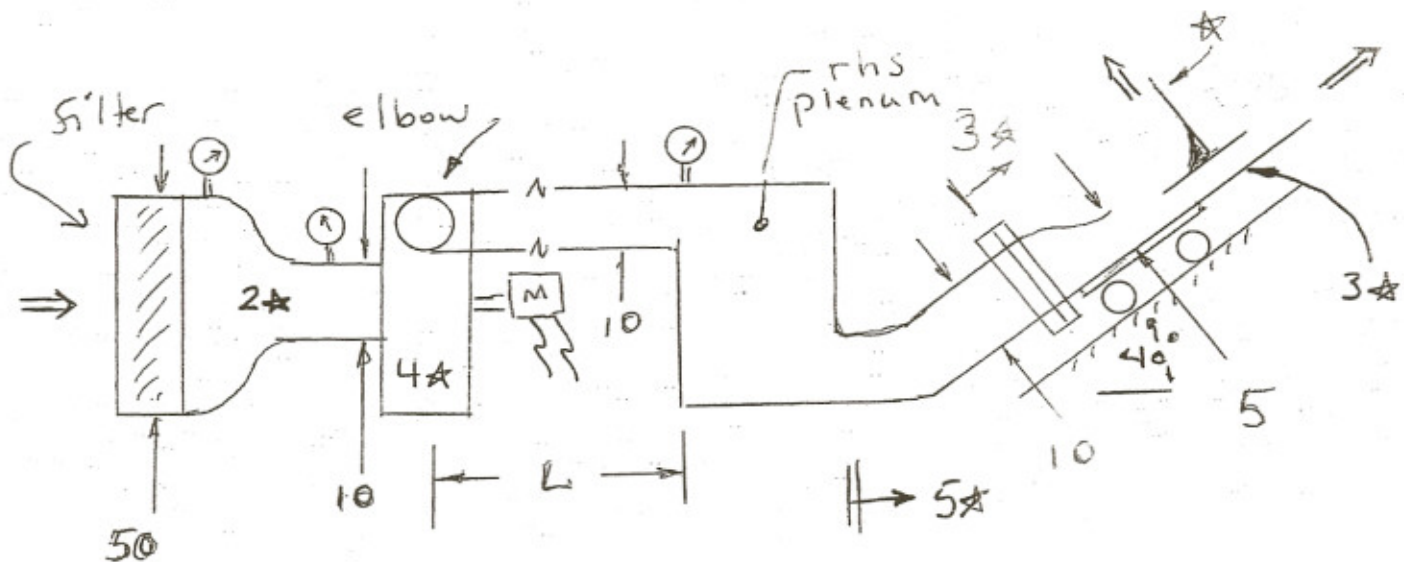 filter
elbow
rhs
plenum
3☆
☆
2☆
4☆
M
10
3☆
40°
5
10
L
10
5☆
50